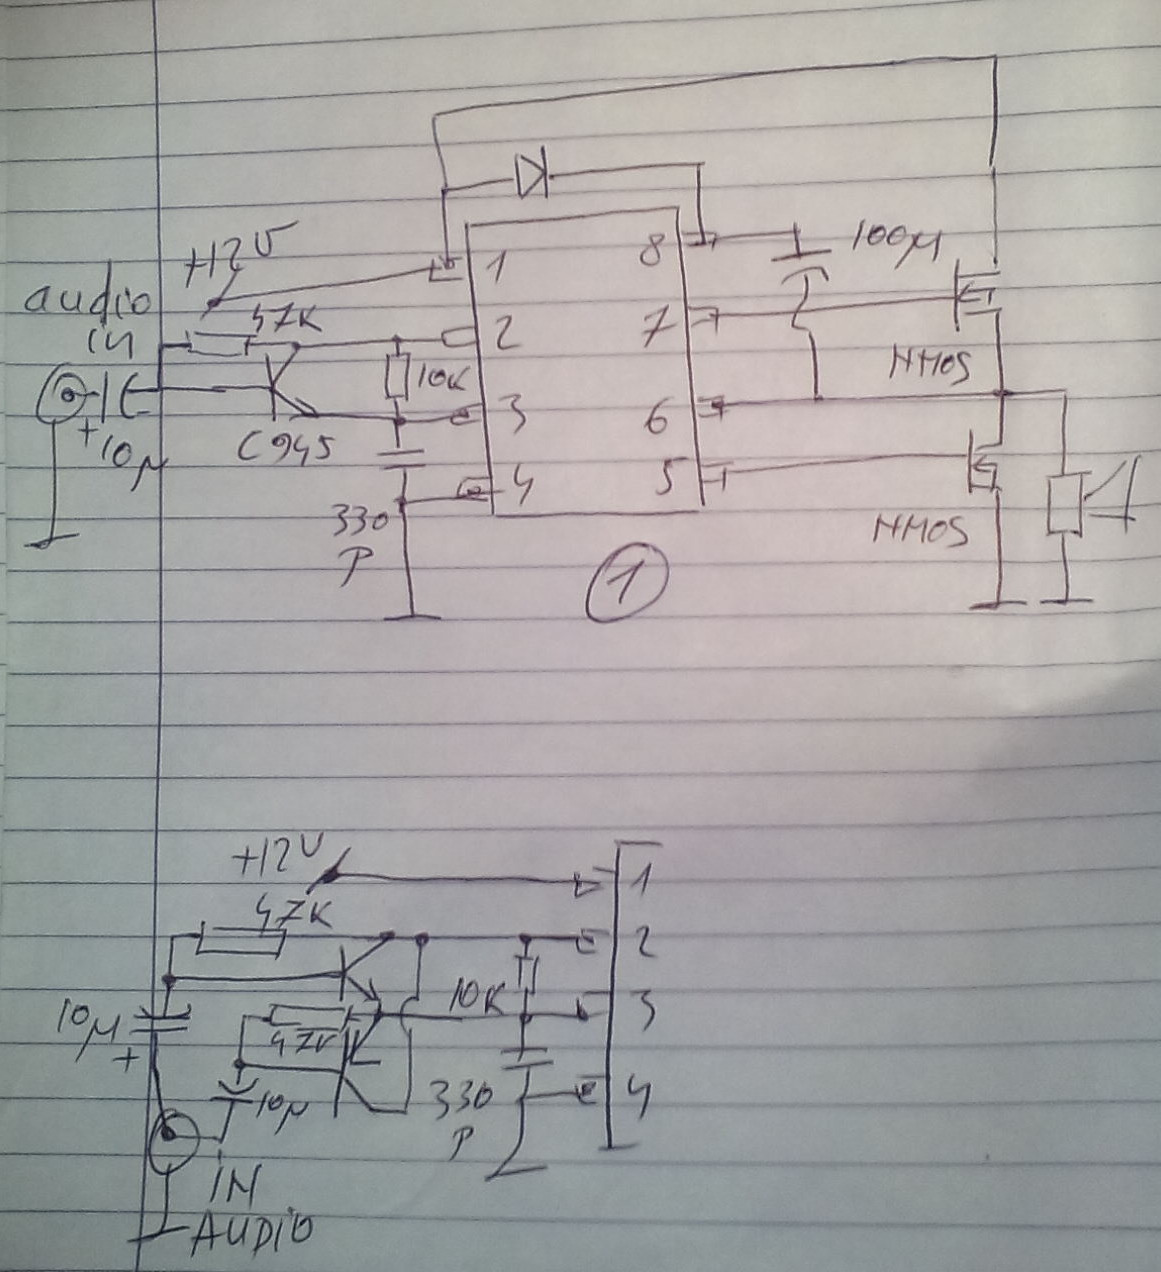 +12V
audio
in
47K
10K
+
10µ
C945
330
P
1
2
3
4
8
7
6
5
100µ
NMOS
NMOS
1
+12V
47K
10µ
+
47K
10µ
10K
330
P
1
2
3
4
IN
AUDIO